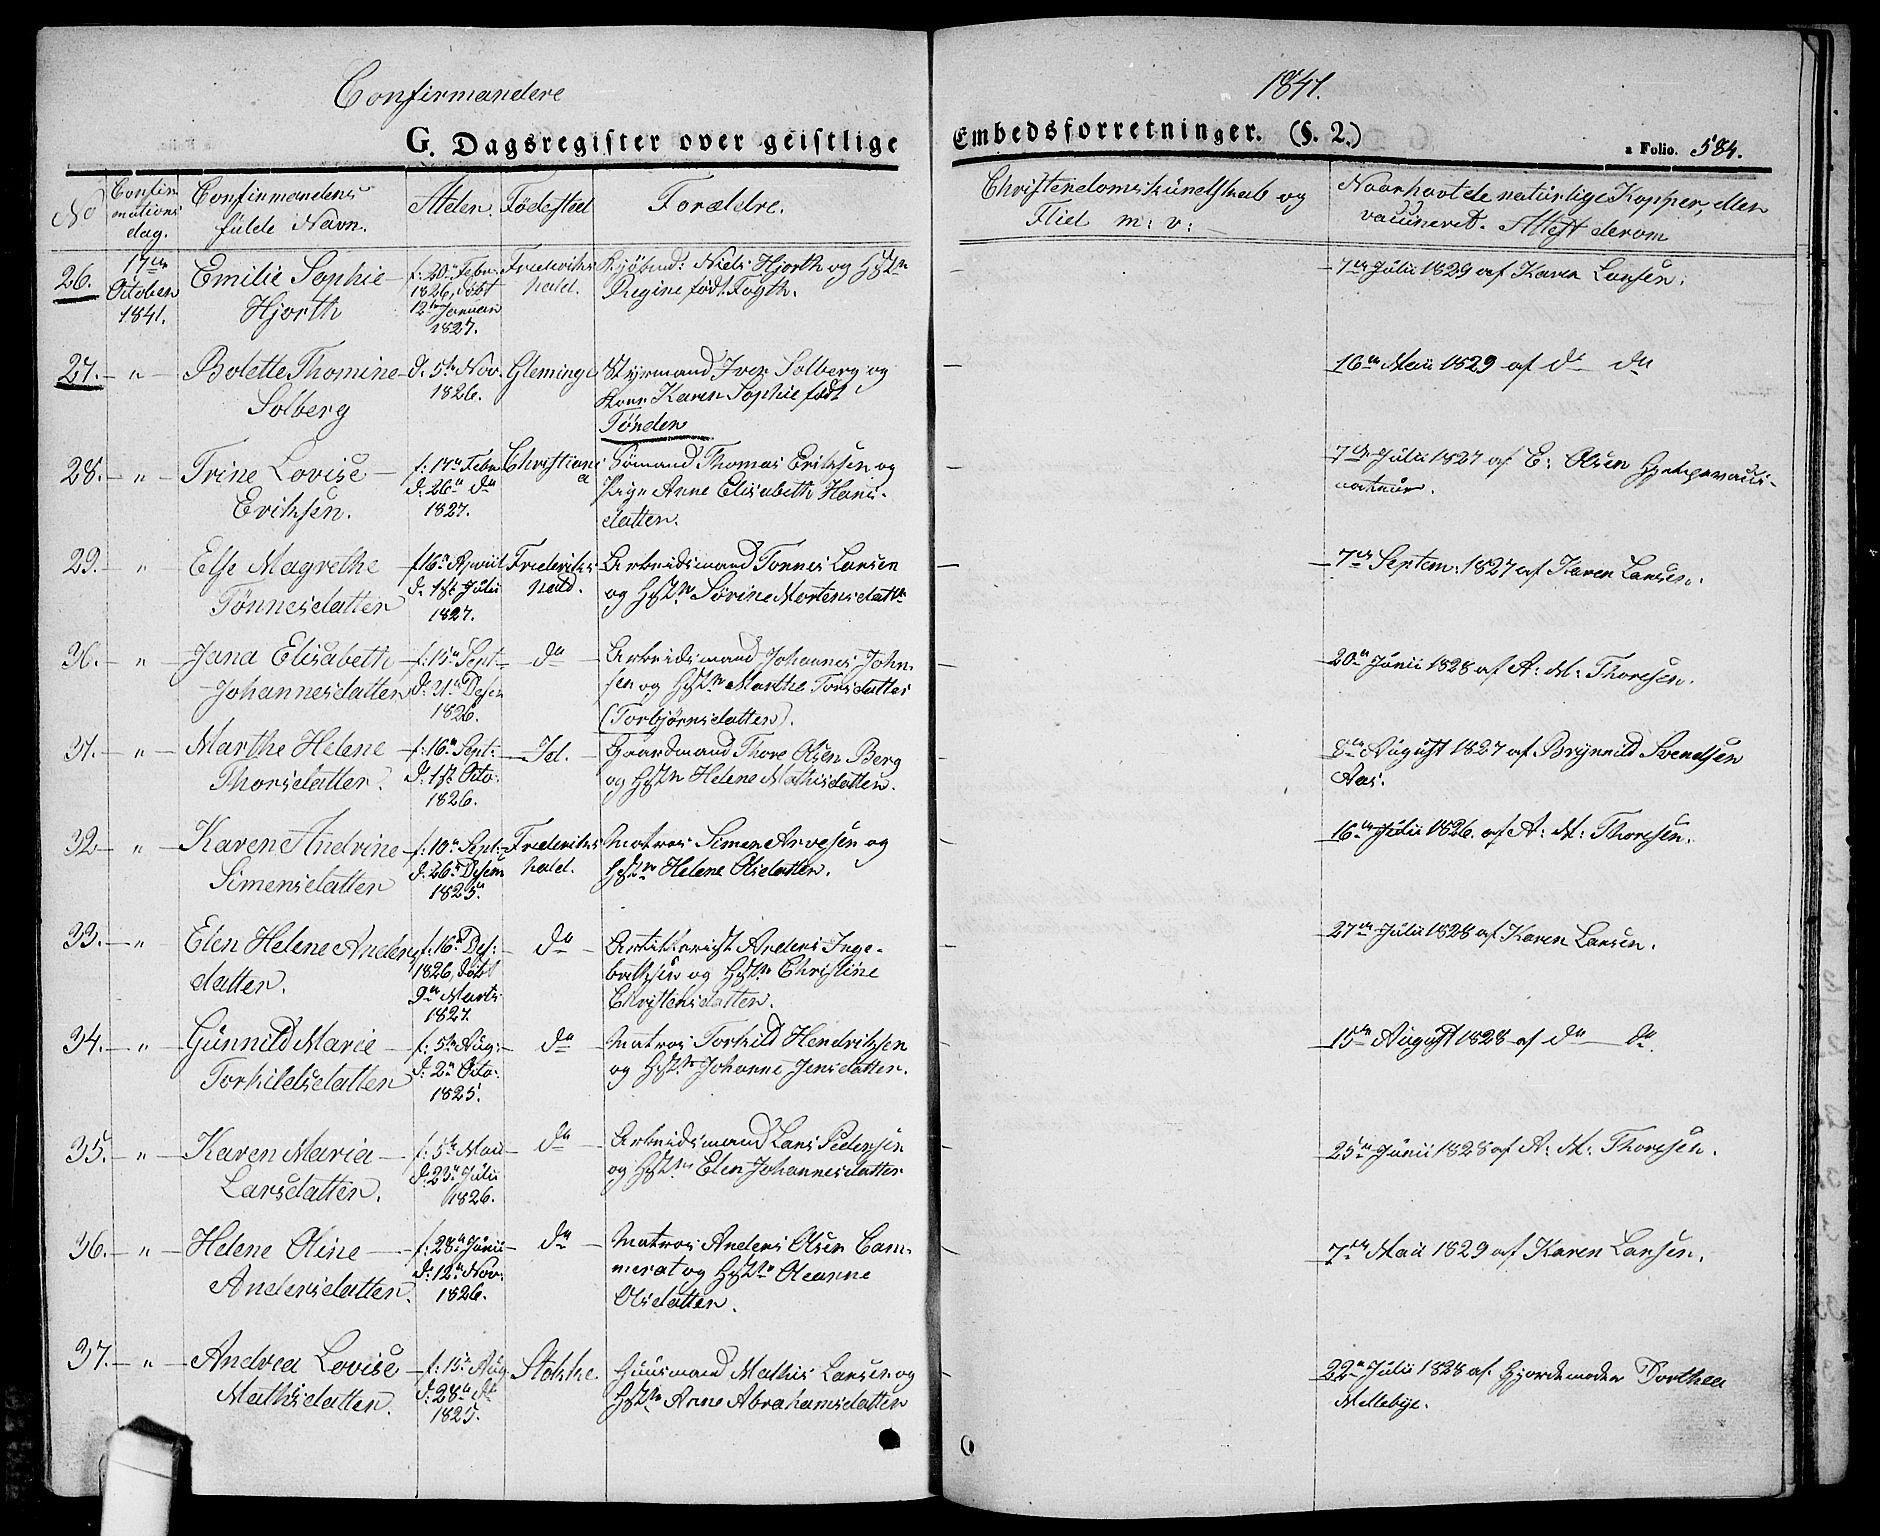 Confirmandere
1841.
G. Dagsregister over geistlige
Embedsforretninger. (§. 2.)
a Folio. 584.
No
Confir
mations
dag.
Confirmandens
fulde Navn.
Alder.
Fødested
Forældre.
Christendomskundskab og
Flid m: v:
Naar havt de naturlige Kopper, eller
vaccineret. Attest derom
26.
17de
October
1841.
Emilie Sophie
Hjorth
f. 20de Febr
1826, døbt
12te Januar
1827.
Frederiks
hald.
Kjøbmd: Niels Hjorth og Hst
Regine født Fogth.
7de Julii 1829 af Karen Larsen.
27. — „ — Bolette Thomine
Solberg
d. 5te Nov.
1826.
Gleminge
Styrmand Iver Solberg og
Karen Sophie født
Tønder
16de Maii 1829 af do do
28. — „ — Trine Lovise
Eriksen.
f: 17de Febr
d. 26de do
1827.
Christiani
a
Sømand Thomas Eriksen og
Pige Anne Elisabeth Hans-
datter.
7de Julii 1827 af E: Olsen
29. „ Else Magrethe
Tønnesdatter
f 16de April
d. 1ste Julii
1827.
Frederiks
hald.
Arbeidsmand Tønnes Larsen
og Hst Sørine Mortensdattr
7de Septem: 1827 af Karen Larsen.
30. — „ — Jana Elisabeth
Johannesdatter
f. 15de Sept
d. 21de Desem
1826.
do
Arbeidsmand Johannes John-
sen og Hst Marthe Torsdatter
(Torbjørnsdatter).
20de Junii 1828 af A: M: Thoresen.
31. — „ — Marthe Helene
Thorsdatter.
f. 16de Sept:
d. 1ste Octo:
1826.
Id.
Gaardmand Thore Olsen Berg
og Hst Helene Mathisdatter.
8de August 1827 af Brynild Svendsen
Aas.
32 — „ — Karen Andrine
Simensdatter
f. 10de Sept:
d. 26de Desem
1825.
Frederiks
hald.
Matros Simen Arvesen og
Hst Helene Olsdatter.
16de Julii 1826. af A: M: Thoresen.
33. — „ — Elen Helene Anders
datter.
f. 16de Des:
1826, døbt
9de Marts
1827.
do
Anders Inge-
brethsen og Hst Christine
Christensdatter.
27de Julii 1828 af Karen Larsen.
34. — „ — Gunnild Marie
Torkildsdatter
f. 5te Aug:
d. 2de Octo:
1825.
do
Matros Torkild Hendriksen
og Hst Johanne Jensdatter.
15de August 1828 af do do.
35. — „ — Karen Maria
Larsdatter.
f. 5te Mai
d. 23de Julii
1826.
do
Arbeidsmand Lars Pedersen
og Hst Elen Johannesdatter
25de Junii 1828 af A: M: Thoresen.
36. — „ — Helene Oline
Andersdatter.
f. 28de Junii
d. 12te Nov:
1826.
do
Matros Anders Olsen Cam-
merat og Hst Oleanne
Olsdatter.
7de Maii 1829 af Karen Larsen.
37. — „ — Andrea Lovise
Mathisdatter.
f. 15de Aug
d. 28de
1825.
Stokke.
Huusmand Mathis Larsen og
Hst Anne Abrahamsdatter
22de Julii 1828 af. Gjordemoder Dorthea
Mellebye.